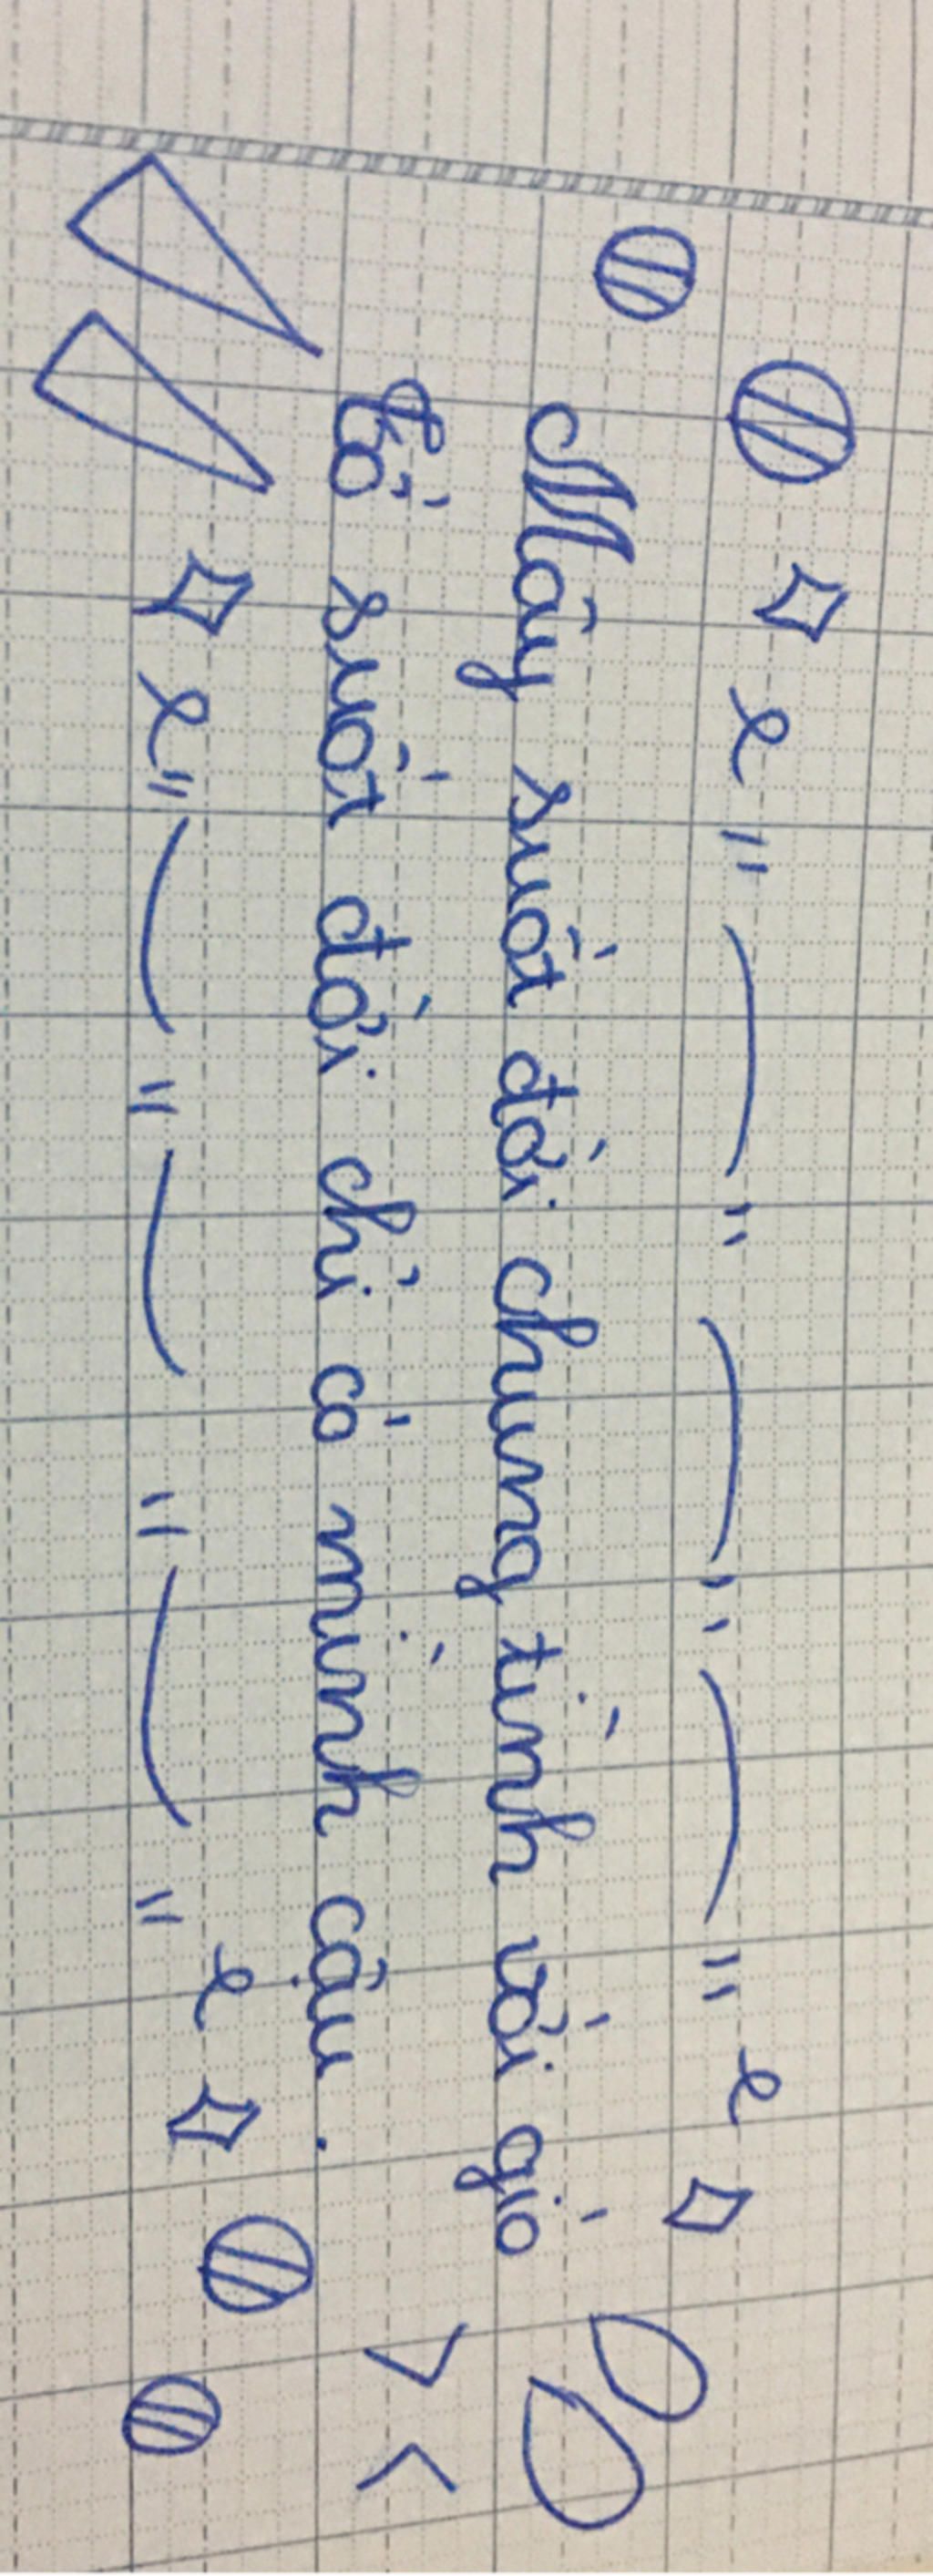 Mây suốt đời chung tình với gió
Tớ suốt đời chỉ có mình cậu.